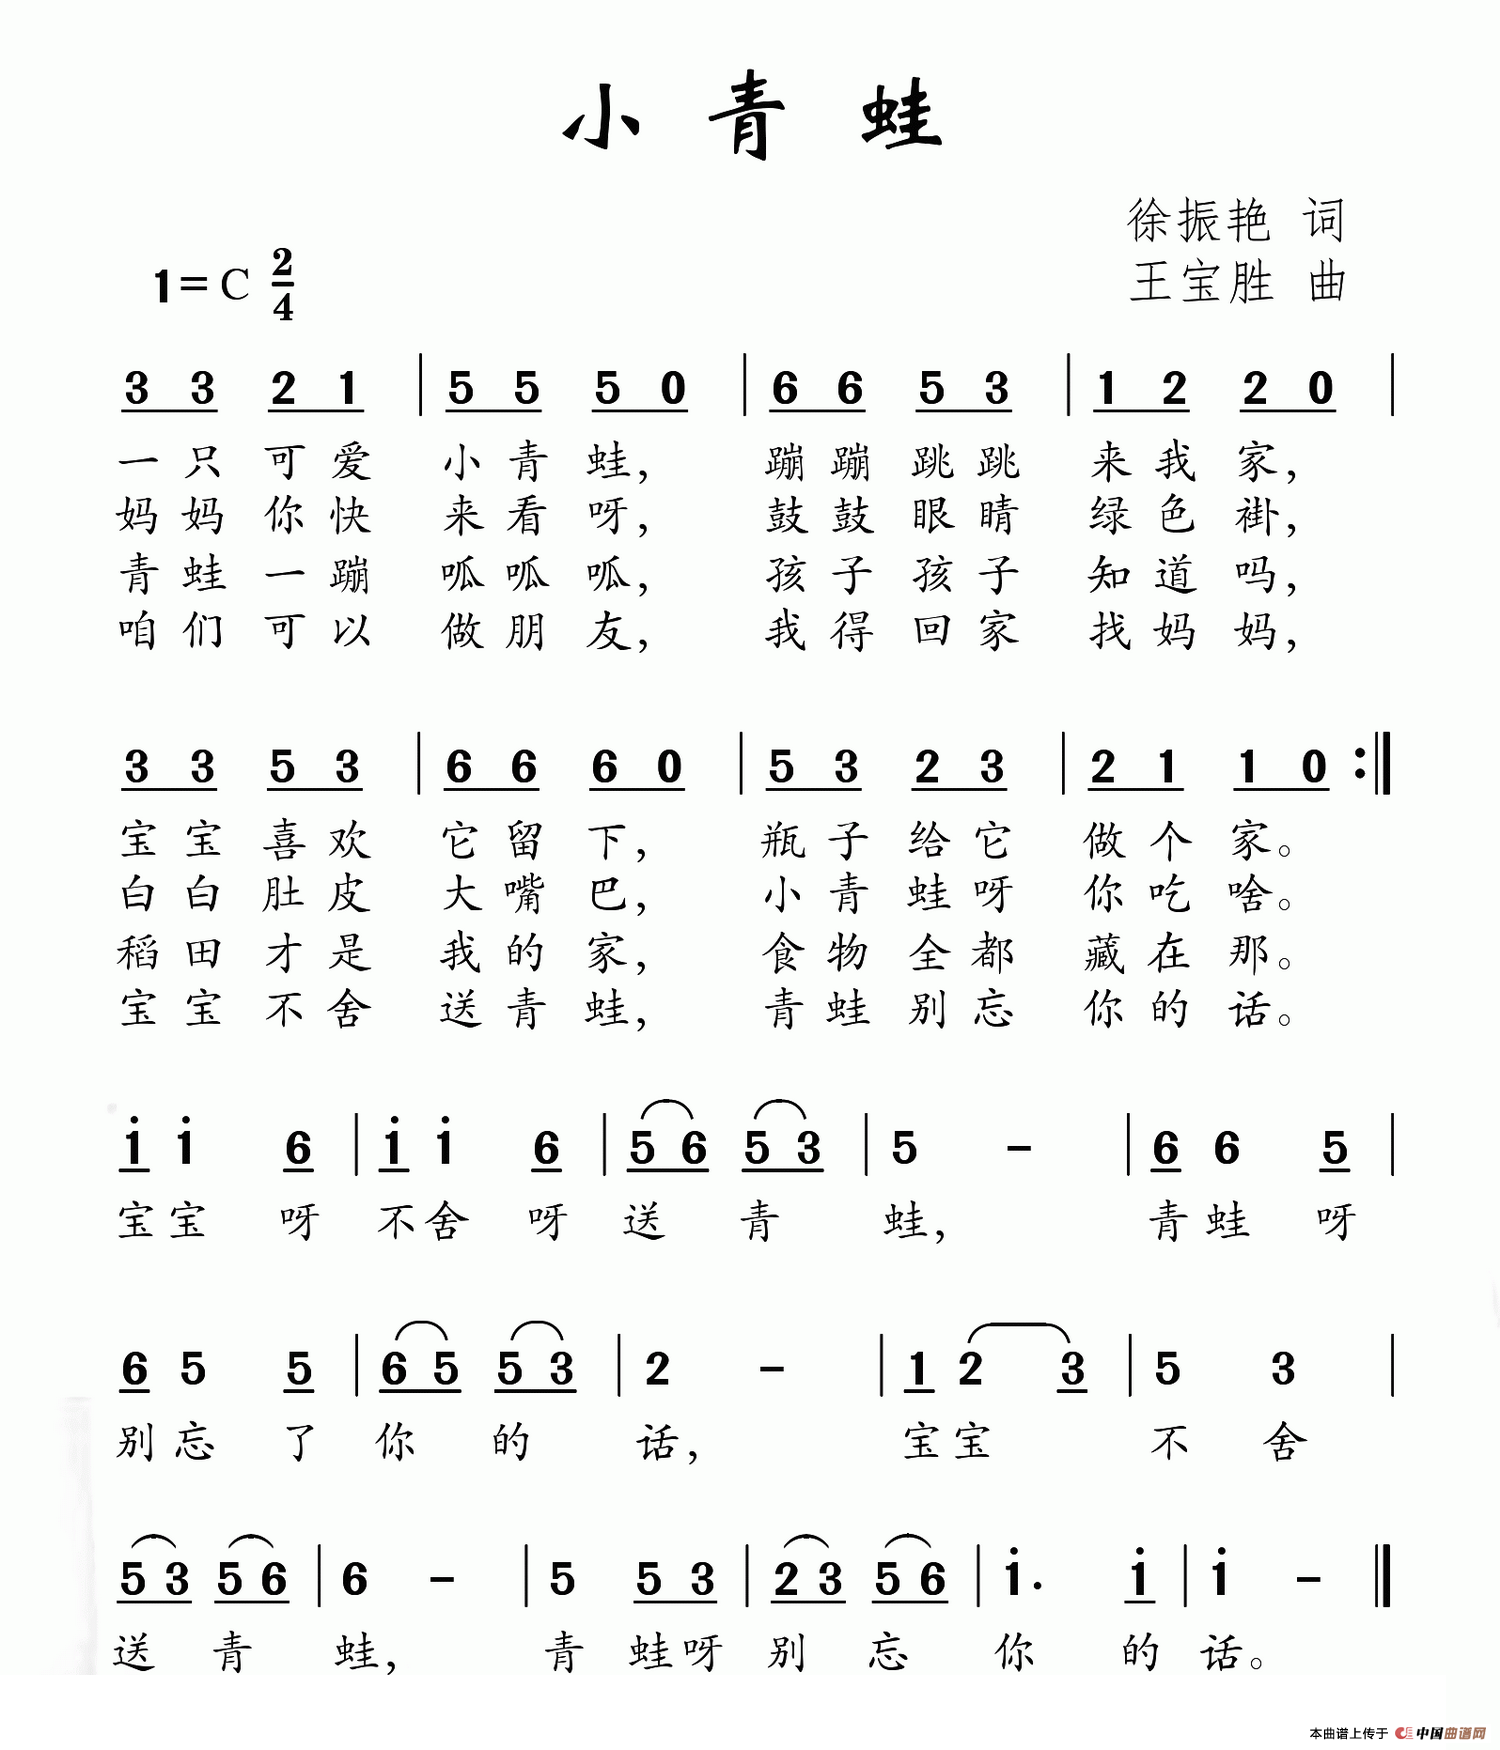 小青蛙
徐振艳 词
1=C 2/4
王宝胜 曲
3 3 2 1 | 5 5 5 0 | 6 6 5 3 | 1 2 2 0 |
一只可爱 小青蛙, 蹦蹦跳跳 来我家,
妈妈你快 来看呀, 鼓鼓眼睛 绿色褂,
青蛙一蹦 呱呱呱, 孩子孩子 知道吗,
咱们可以 做朋友, 我得回家 找妈妈,
3 3 5 3 | 6 6 6 0 | 5 3 2 3 | 2 1 1 0 :‖
宝宝喜欢 它留下, 瓶子给它 做个家。
白白肚皮 大嘴巴, 小青蛙呀 你吃啥。
稻田才是 我的家, 食物全都 藏在那。
宝宝不舍 送青蛙, 青蛙别忘 你的话。
i i 6 | i i 6 | 5 6 5 3 | 5 - | 6 6 5 |
宝宝 呀 不舍 呀 送 青 蛙, 青蛙 呀
6 5 5 | 6 5 5 3 | 2 - | 1 2 3 | 5 3 |
别忘 了 你 的 话, 宝宝 不 舍
5 3 5 6 | 6 - | 5 5 3 | 2 3 5 6 | i. i | i - ‖
送 青 蛙, 青 蛙呀 别 忘 你 的 话。
本曲谱上传于 中国曲谱网